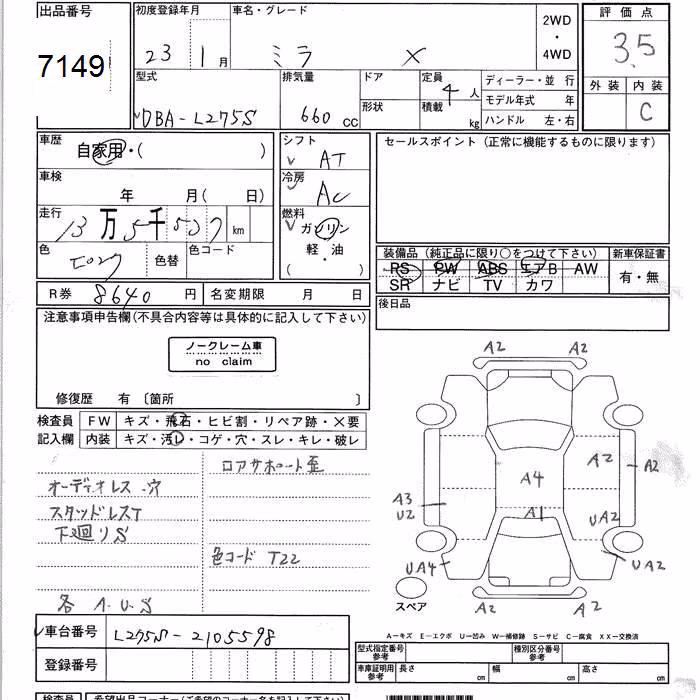 出品番号
7149
初度登録年月
23 1月
車名・グレード
ミラ X
2WD
・
4WD
評価点
3.5
外装 内装
C
型式
DBA-L275S
排気量
660 CC
ドア
形状
定員
4 人
積載 kg
ディーラー・並 行
モデル年式 年
ハンドル 左・右
車歴
自家用・( )
車検
年 月( 日)
走行
13万5千507 km
色
色替
色コード
R券 8640 円
名変期限 月 日
シフト
AT
冷房
AC
燃料
ガソリン
軽・油
( )
セールスポイント (正常に機能するものに限ります)
装備品 (純正品に限り○をつけて下さい)
新車保証書
RS PW ABS エアB AW
SR ナビ TV カワ
有・無
後日品
注意事項申告欄(不具合内容等は具体的に記入して下さい)
ノークレーム車
no claim
修復歴 有 〔箇所 〕
検査員
記入欄
FW キズ・飛石・ヒビ割・リペア跡・X要
内装 キズ・汚レ・コゲ・穴・スレ・キレ・破レ
ロアサポート歪
オーディオレス .穴
スタッドレスT
下廻りS
色コード T22
各 A.U.S
A2 A2
A4
A2
A2
A3
U2
A1
UA2
UA4
UA2
A2 A2
スペア
A-キズ E-エクボ U-凹み W-補修跡 S-サビ C-腐食 XX-交換済
車台番号
L275S-2105598
登録番号
型式指定番号
参考
種別区分番号
参考
車庫証明用
参考
長さ cm
幅 cm
高さ cm
検査員
希望出品コーナー(ご希望のコーナー名を記入下さい)